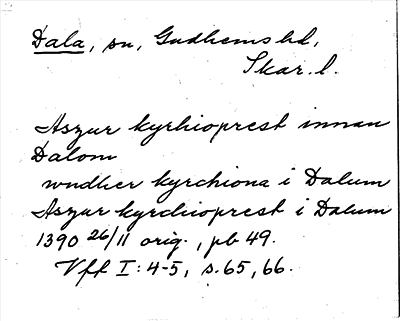 Dala, sn, Gudhems hd,
Skar. l.
Aszur kyrhioprest innan
Dalom
wndher kyrchiona i Dalum
Aszur kyrchioprest i Dalum
1390 26/11 orig., pb 49.
Vft I: 4-5, s. 65, 66.